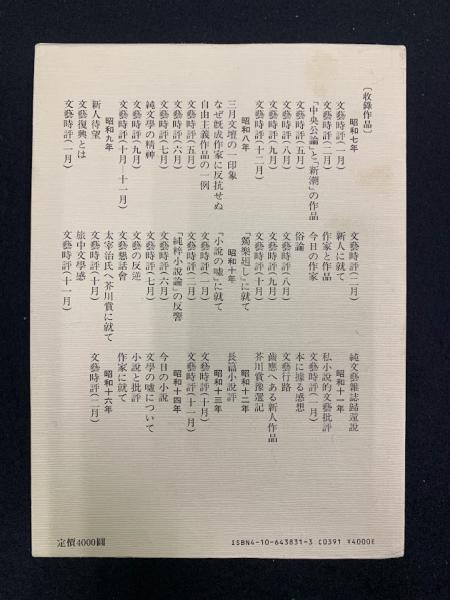 〔收錄作品〕
昭和七年
文藝時評(一月)
文藝時評(二月)
「中央公論」と「新潮」の作品
文藝時評(五月)
文藝時評(八月)
文藝時評(九月)
文藝時評(十二月)
昭和八年
三月文壇の一印象
なぜ旣成作家に反抗せぬ
自由主義作品の一例
文藝時評(五月)
文藝時評(六月)
文藝時評(七月)
純文學の精神
文藝時評(九月)
文藝時評(十月・十一月)
昭和九年
新人待望
文藝復興とは
文藝時評(一月)
文藝時評(二月)
新人に就て
作家と作品
今日の作家
俗論
文藝時評(八月)
文藝時評(九月)
文藝時評(十月)
「獨樂廻し」に就て
昭和十年
「小說の噓」に就て
文藝時評(一月)
文藝時評(二月)
「純粹小說論」の反響
文藝時評(六月)
文藝時評(七月)
文藝の反逆
文藝懇話會
太宰治氏へ芥川賞に就て
文藝時評(十月)
旅中文學感
文藝時評(十一月)
純文藝雜誌歸還說
昭和十一年
私小說的文藝批評
文藝時評(一月)
本に據る感想
文藝行路
齒應へある新人作品
芥川賞豫選記
昭和十二年
長篇小說評
昭和十三年
文藝時評(十月)
文藝時評(十一月)
昭和十四年
今日の小說
文學の噓について
小說と批評
作家に就て
昭和十六年
文藝時評(一月)
定價4000圓
ISBN4-10-643831-3 C0391 ¥4000E